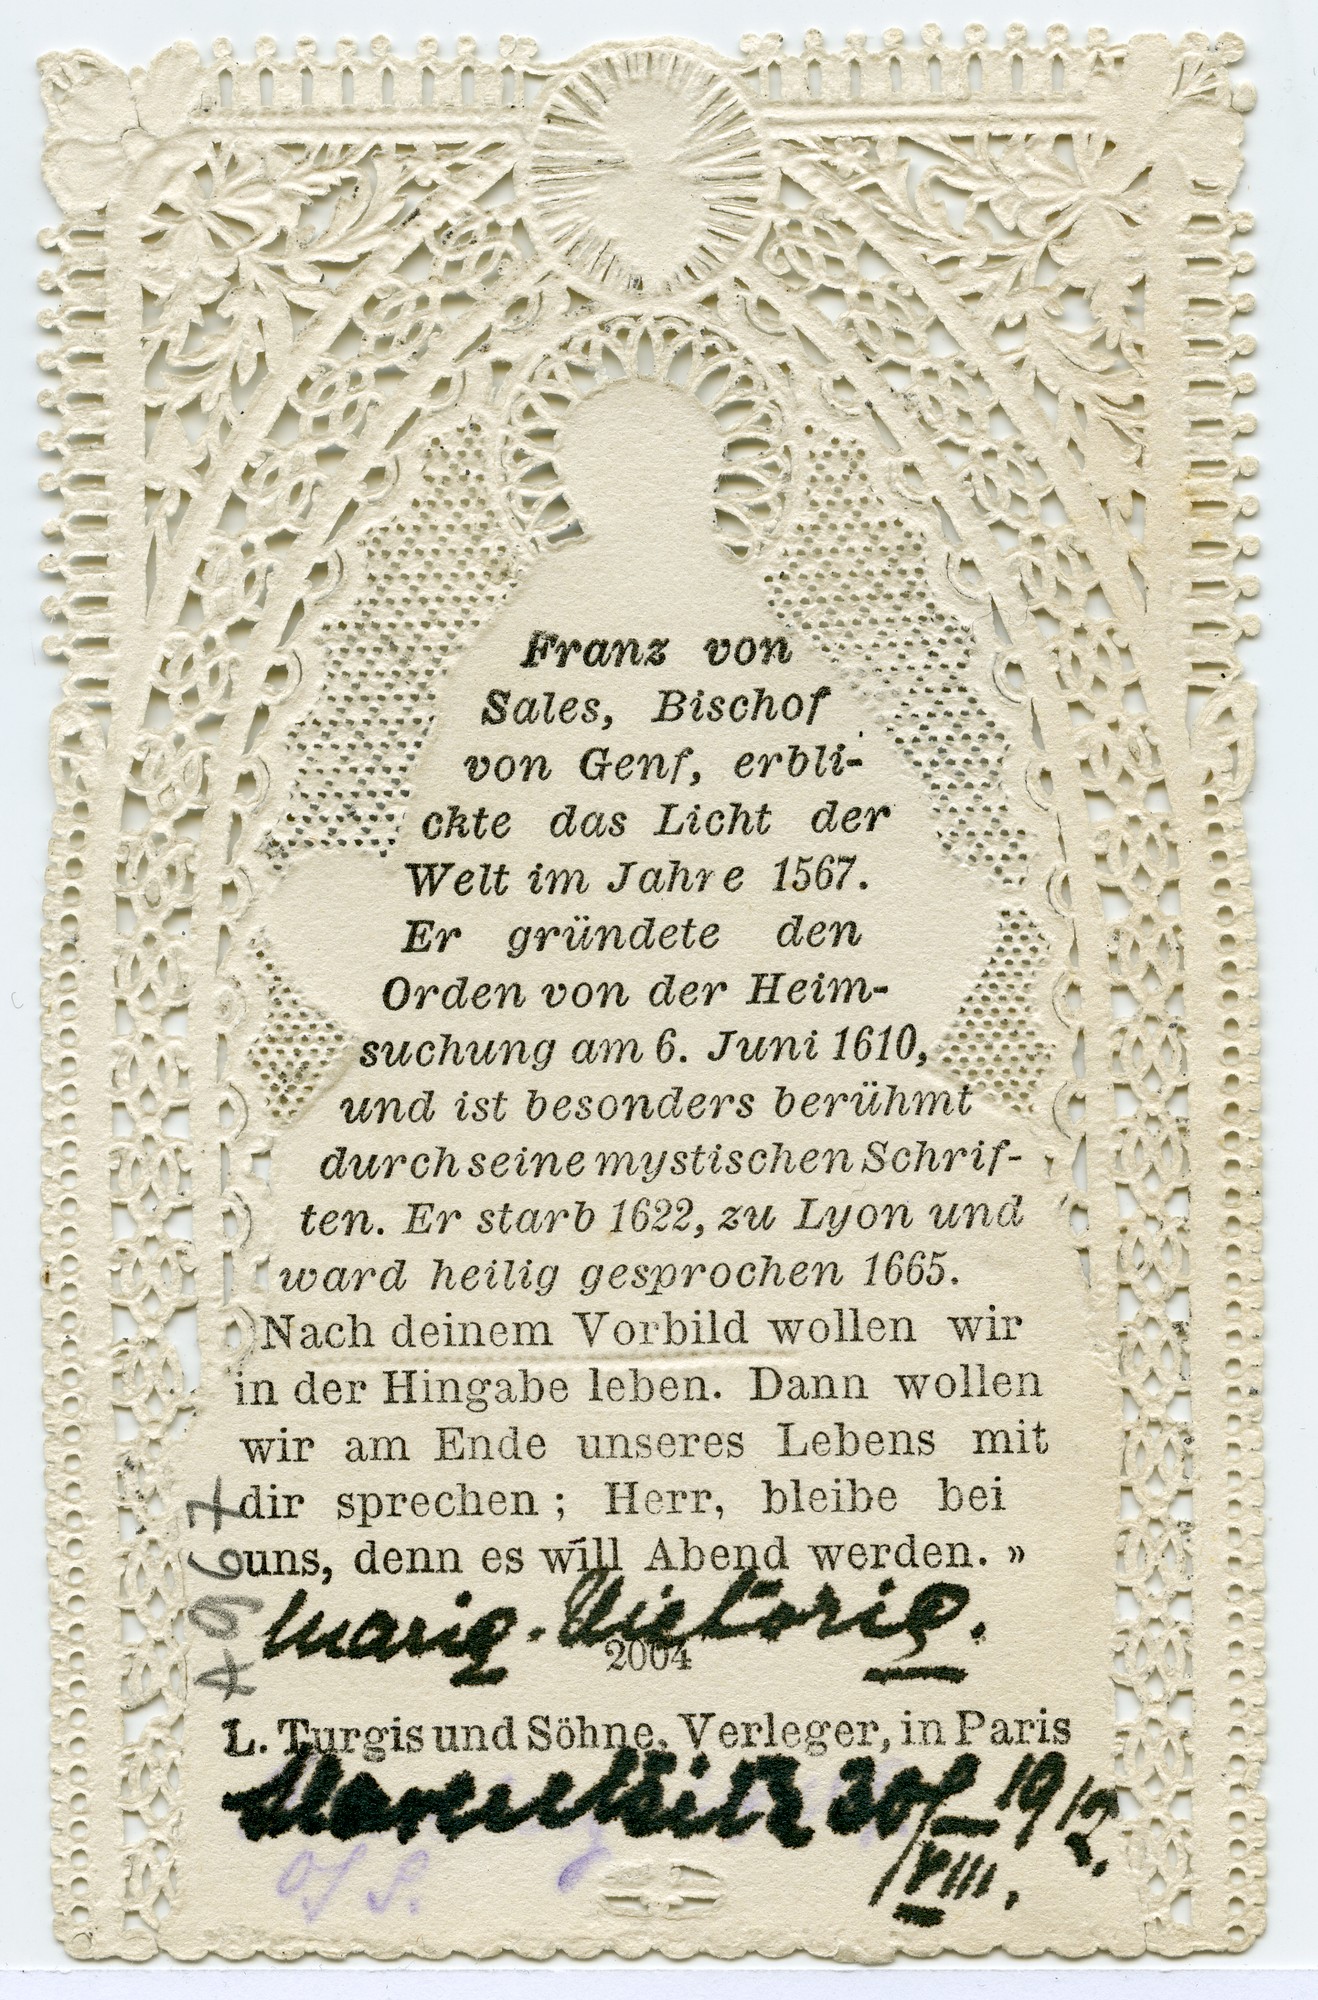 Franz von
Sales, Bischof
von Genf, erbli-
ckte das Licht der
Welt im Jahre 1567.
Er gründete den
Orden von der Heim-
suchung am 6. Juni 1610,
und ist besonders berühmt
durch seine mystischen Schrif-
ten. Er starb 1622, zu Lyon und
ward heilig gesprochen 1665.
Nach deinem Vorbild wollen wir
in der Hingabe leben. Dann wollen
wir am Ende unseres Lebens mit
dir sprechen ; Herr, bleibe bei
uns, denn es will Abend werden. »
Marie-Victorie.
2004
L. Turgis und Söhne, Verleger, in Paris
30/VIII. 1912.
A 967